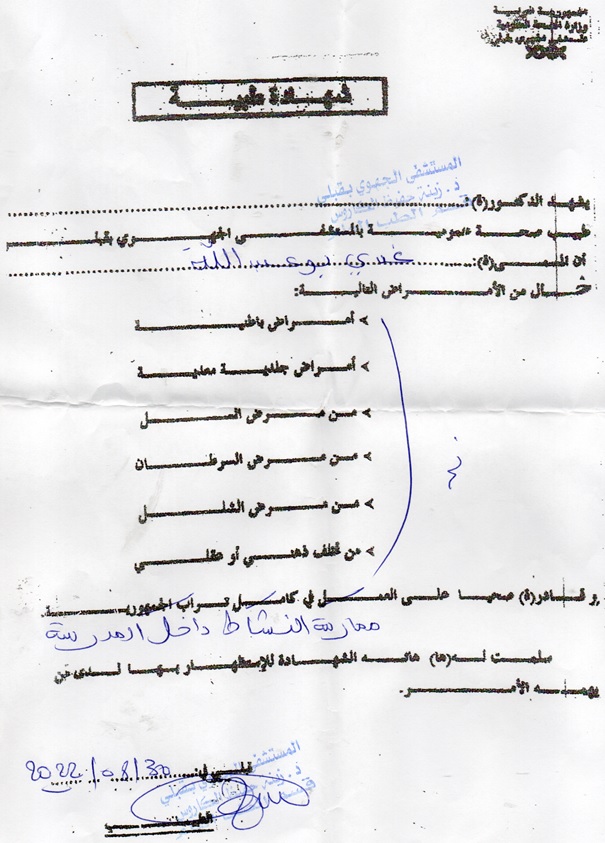 الجمهورية التونسية
وزارة الصحة العمومية
شهادة طبية
المستشفى الجهوي بقبلي
يشهد الدكتور(ة):
طبيب صحة عمومية بالمستشفى الجهوي بقبلي
أن المسمى(ة):
خال من الأمراض التالية:
أمراض باطنية
أمراض جلدية معدية
من مرض السل
من مرض السرطان
من مرض الشلل
من تخلف ذهني أو عقلي
و قادر(ة) صحيا على العمل في كامل تراب الجمهورية
ممارسة النشاط داخل المدرسة
سلمت له(ها) هاته الشهادة للإستظهار بها لدى من
يهمه الأمر.
قبلي في: 2022/08/30
المستشفى الجهوي بقبلي
الطبيب